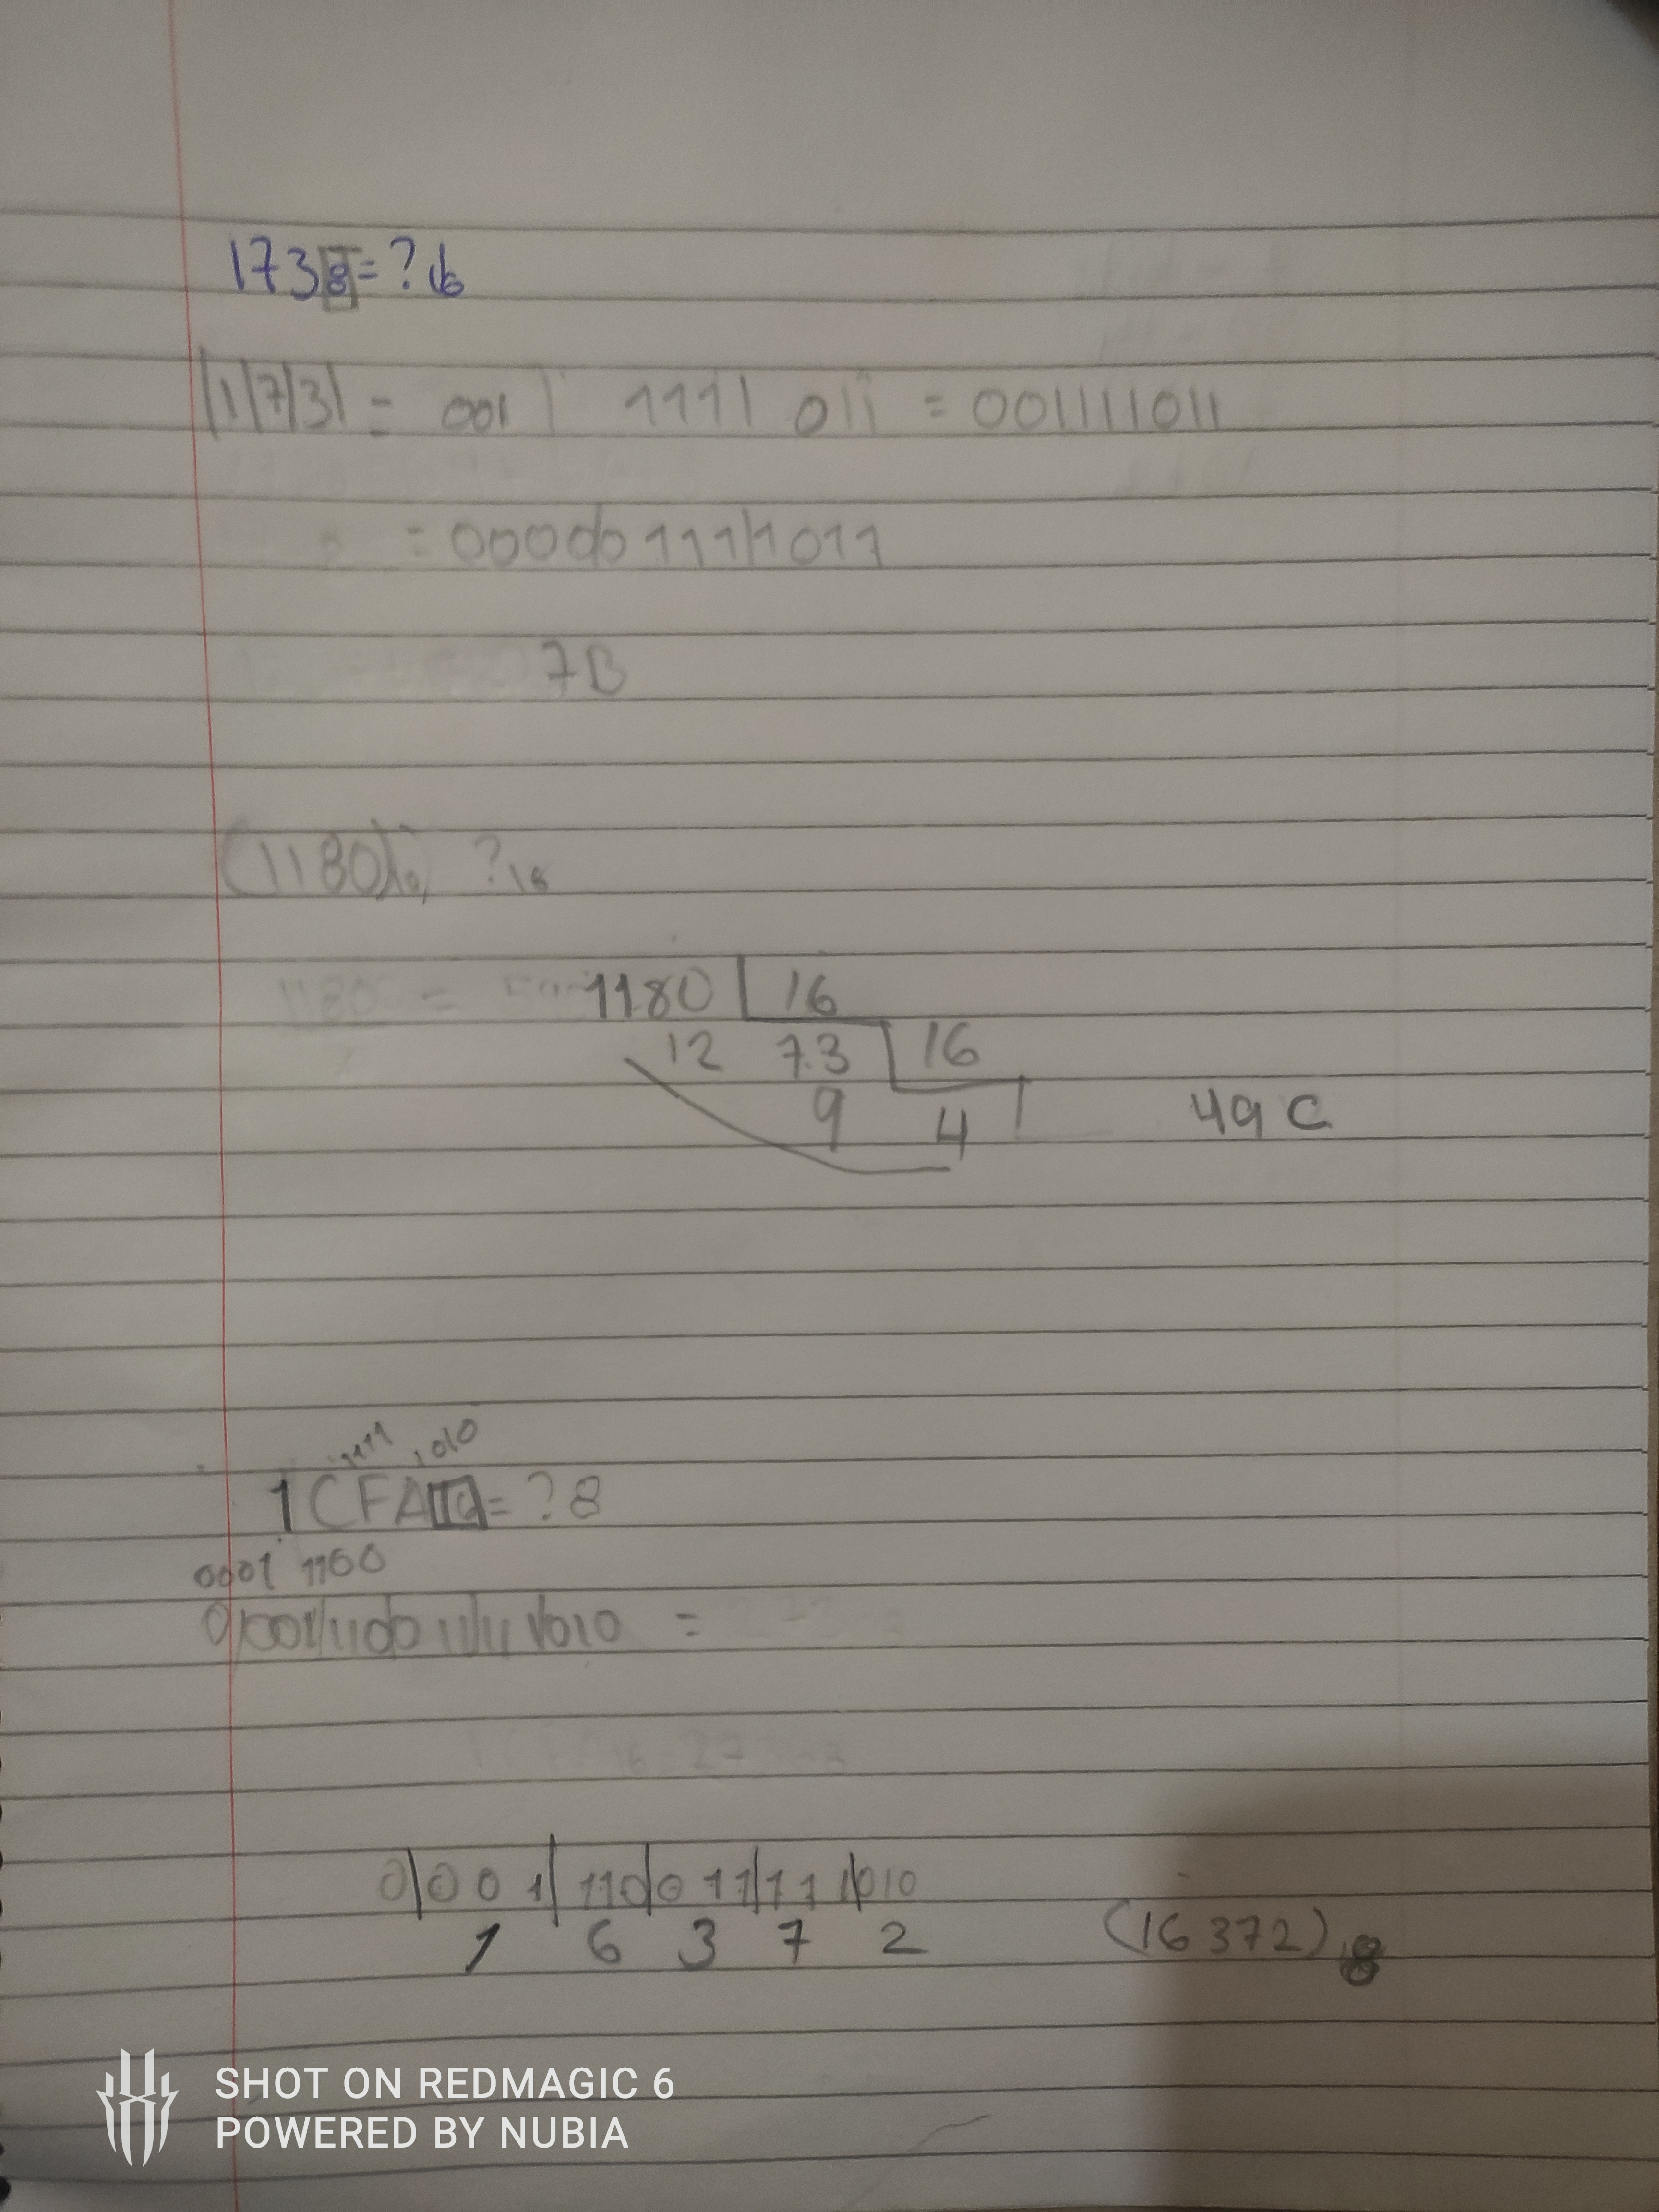 1738=?16
|1|7|3| = 001| 111| 011 = 001111011
= 0000|0111|1011
7B
(1180)10 ?16
1180 = 1180 | 16
12 73 | 16
9 4 | 49C
1111 1010
1CFA16=?8
0001 1100
0|001|110|0 11|11 1|010 =
0|001|110|011|111|010
1 6 3 7 2 (16372)8
SHOT ON REDMAGIC 6
POWERED BY NUBIA